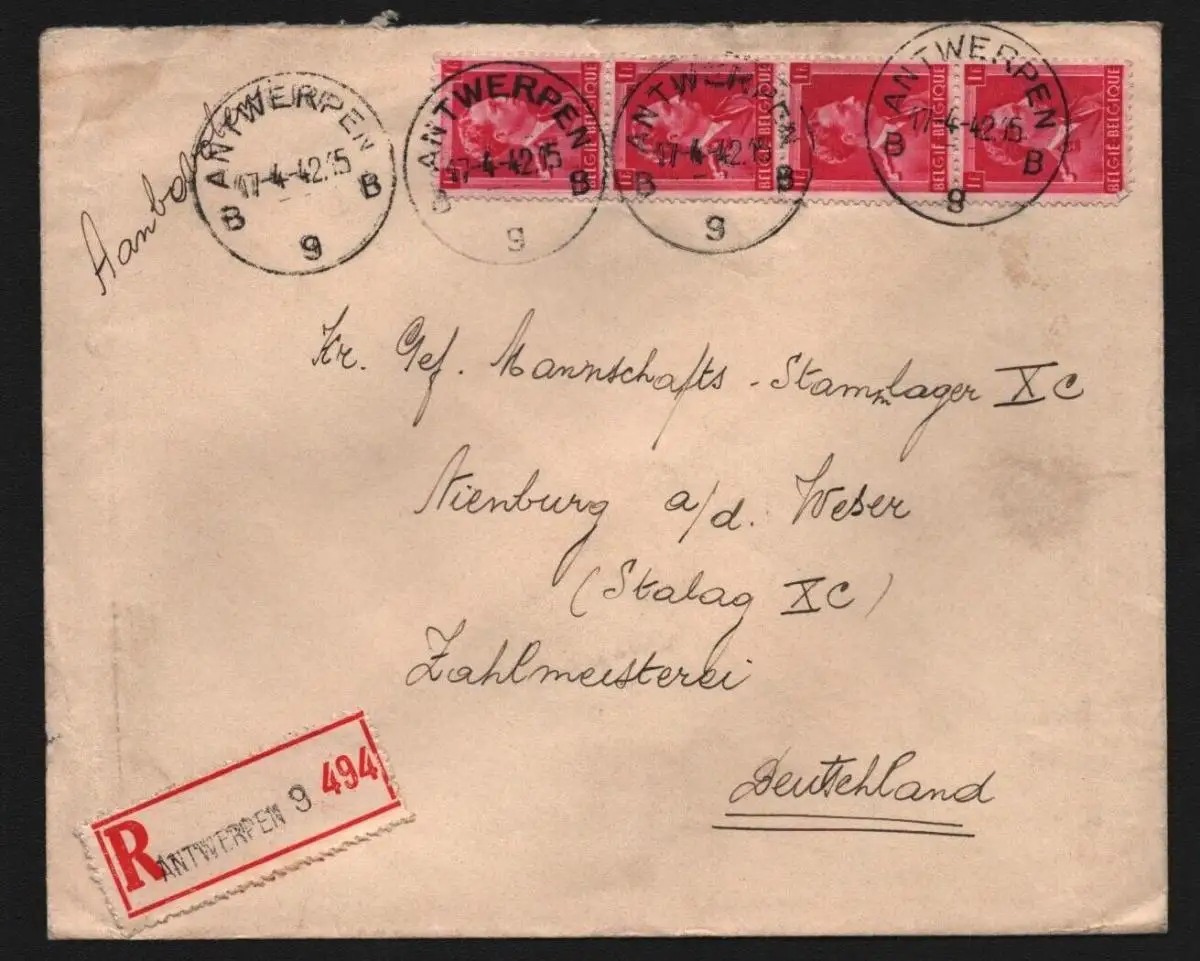 Aanbevolen
ANTWERPEN
17-4-42.15
B B
9
ANTWERPEN
17-4-42.15
B
9
ANTWERPEN
17-4-42.15
B B
9
ANTWERPEN
17-4-42.15
B B
9
1F BELGIË BELGIQUE 1F
1F BELGIË BELGIQUE 1F
1F BELGIË BELGIQUE 1F
1F BELGIË BELGIQUE 1F
Kr. Gef. Mannschafts - Stammlager XC
Nienburg a/d. Weser
(Stalag XC)
Zahlmeisterei
Deutschland
R ANTWERPEN 9 494